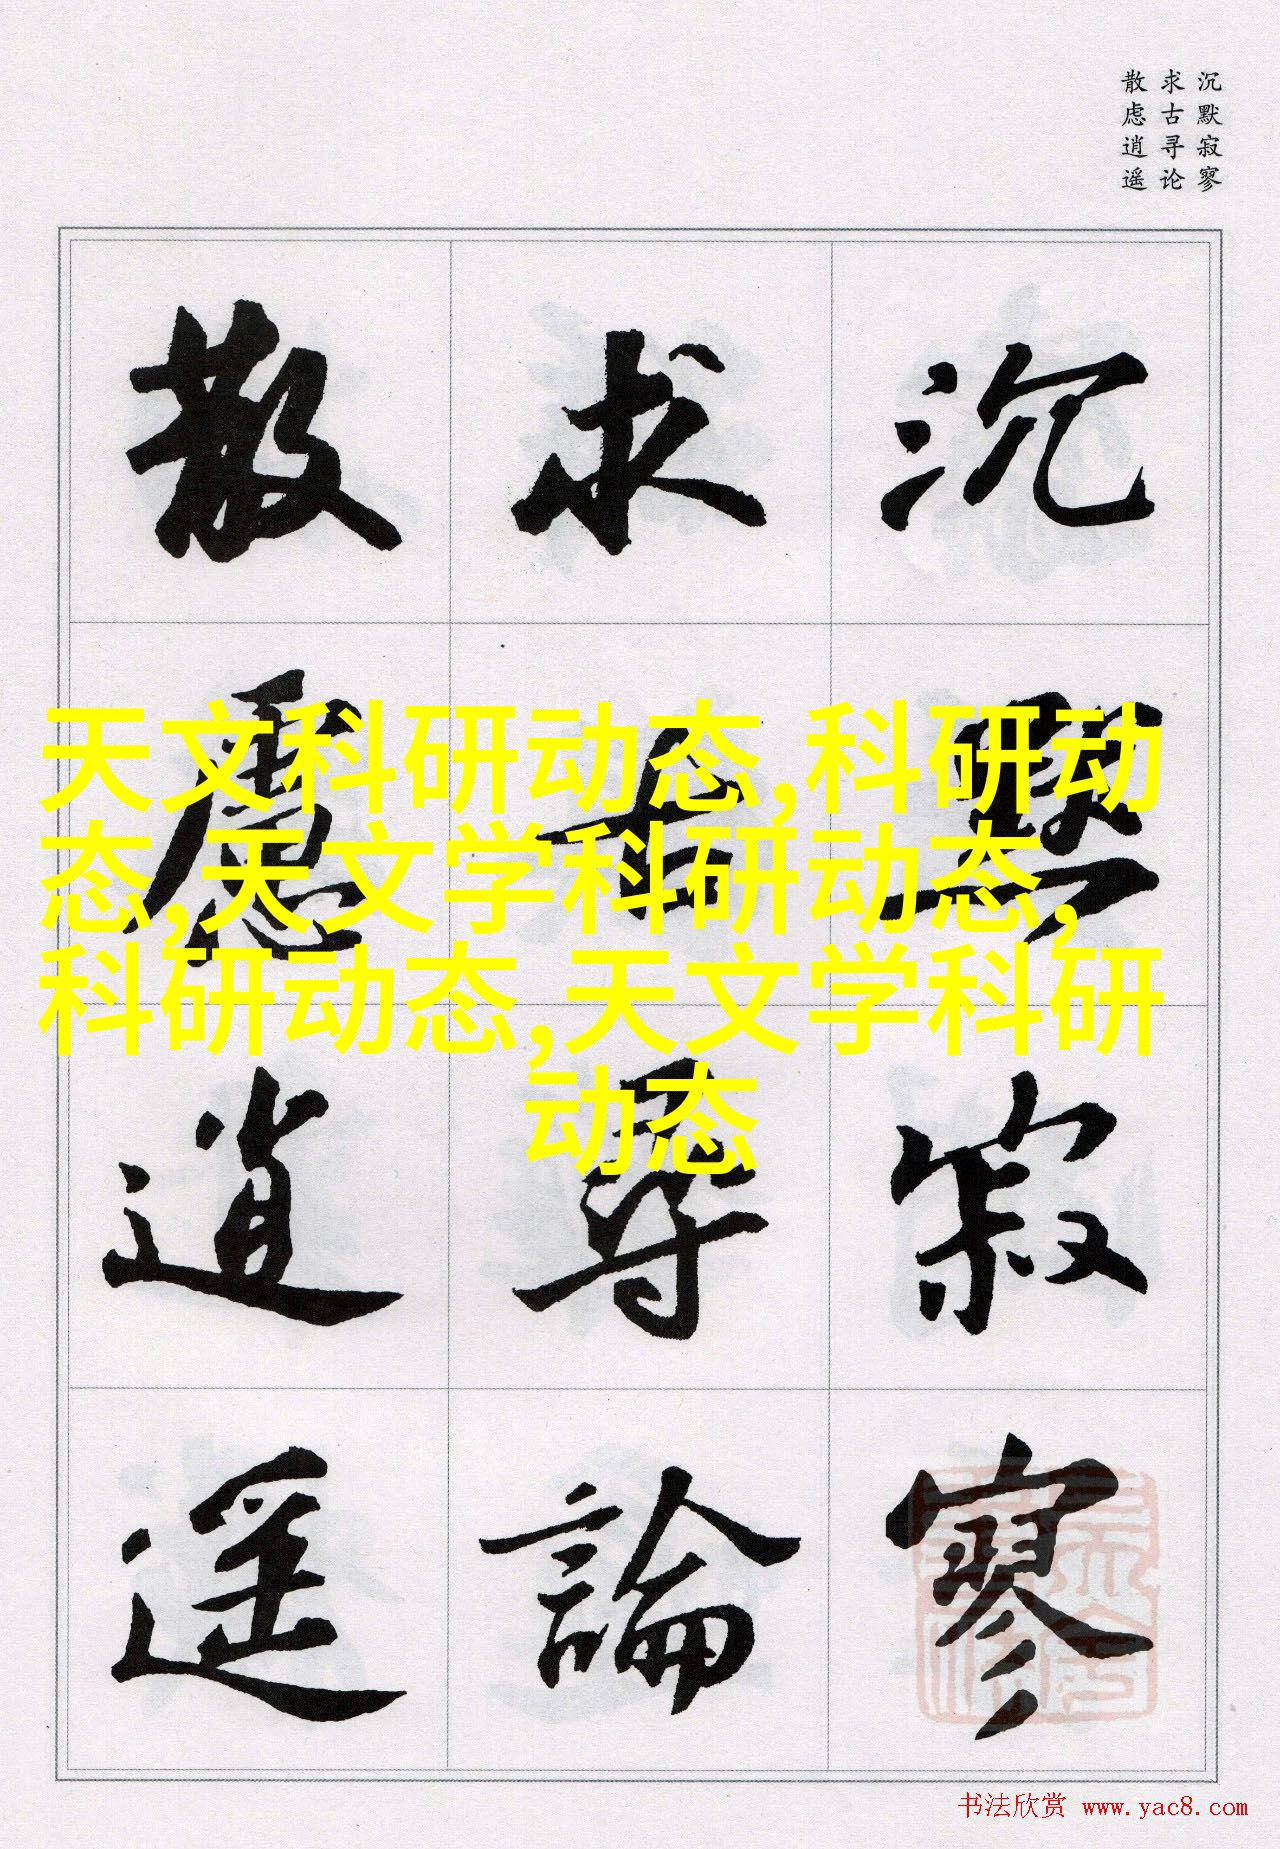 沉默寂寥
求古寻论
散虑逍遥
沉默寂寥
求古尋論
散慮逍遥
天文科研动态,科研动
态,天文学科研动态,
科研动态,天文学科研
动态
书法欣赏 www.yac8.com